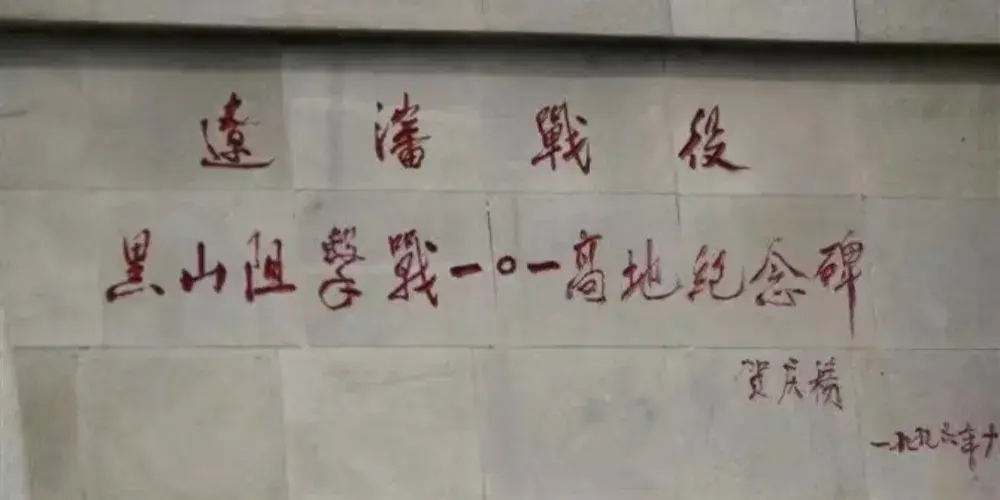 遼瀋戰役
黑山阻擊戰一〇一高地紀念碑
贺庆积
一九九六年十